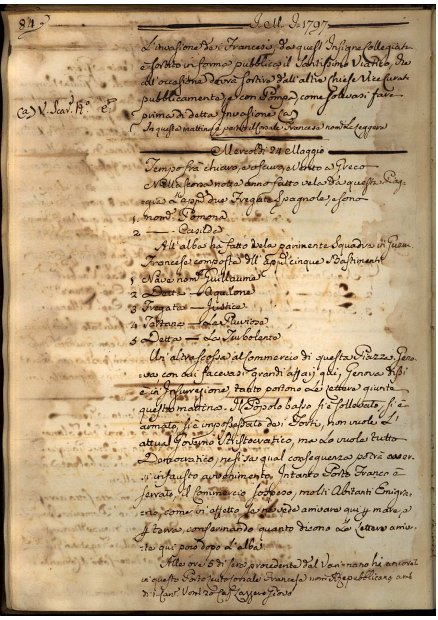 84
1797
L'invasione de' Francesi, da quest'Insigne Collegiata
è sortito in forma pubblica il Santissimo Viatico, che
all'occasione dovrà sortire dall'altre chiese Vicecurate
pubblicamente, e con Pompa, come solevasi fare
prima di detta Invasione (a)
(a) V.
In questa mattina è partito Francese nom.
Mercoldì 24 Maggio
Tempo frà chiaro, e oscuro, e vento a Greco
Nella scorsa notte anno fatto vela da questa
due Fregate Spagnole, e sono
1. nom.ª Pomona
2 — Casilda
All'alba hà fatto vela parimente Squadra in Guerra
Francese composta dell' cinque Bastimenti
1 Nave nom.ª Guillaume
2 Detta — Aquilone
3 Fregata — Justice
4 Tartana — La Fluviose
5 Detta — La Turbolente
Un altra scossa al Commercio di questa Piazza. Genova
con cui faceva grandi affari qui, Genova
è in Insurezione, tanto portono le lettere giunte
questa mattina. Il Popolo basso si è sollevato, si è
armato, si è impossessato de' Forti, non vuole l'
attual Governo Aristocratico, ma lo vuole tutto
Democratico, nè si sa qual conseguenza potrà avere
infausto avvenimento. Intanto Porto Franco è
serrato, il Commercio sospeso, molti Abitanti Emigrano,
come in effetto se ne vede arrivare qui p. mare, e
p. terra, confermando quanto dicono le Lettere arrivate
qui poco dopo l'alba.
Alle ore 5 di sera procedente dal hà ancorato
in questo Porto Francese nom. Repubblicano